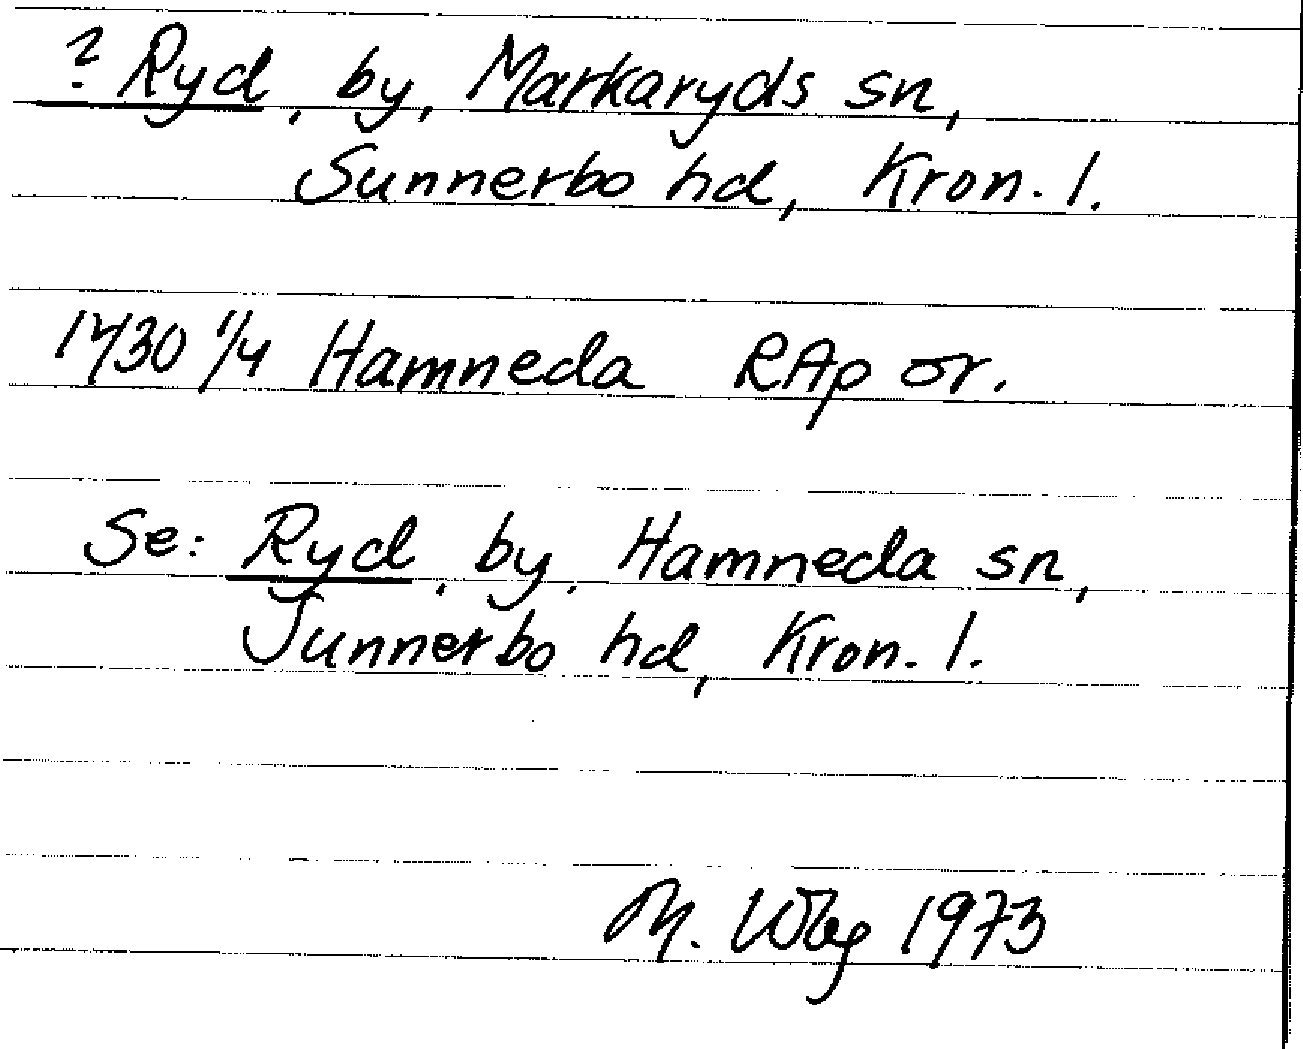 ? Ryd, by, Markaryds sn,
Sunnerbo hd, Kron. l.
1430 1/4 Hamneda RAp or.
Se: Ryd, by, Hamneda sn,
Sunnerbo hd, Kron. l.
M. Wbg 1973